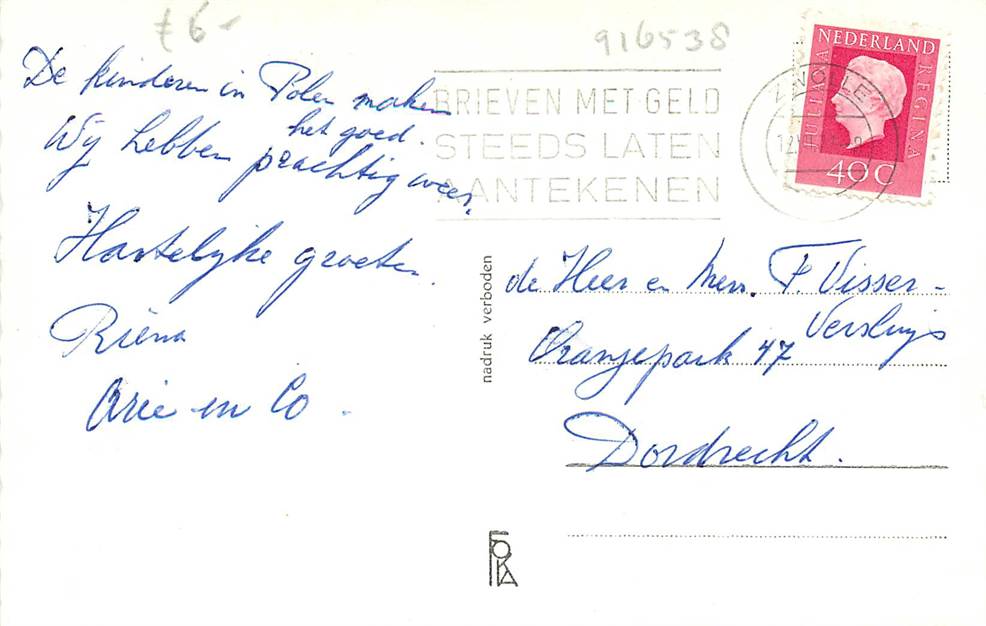 £ 6-
916538
De kinderen in Polen maken
het goed.
Wij hebben prachtig weer.
Hartelijke groeten.
Riena
Arie en Co.
BRIEVEN MET GELD
STEEDS LATEN
AANTEKENEN
ZWOLLE
NEDERLAND
JULIANA
REGINA
40 C
nadruk verboden
de Heer en Mevr. F. Visser-
Versluijs
Oranjepark 47
Dordrecht.
FOKA